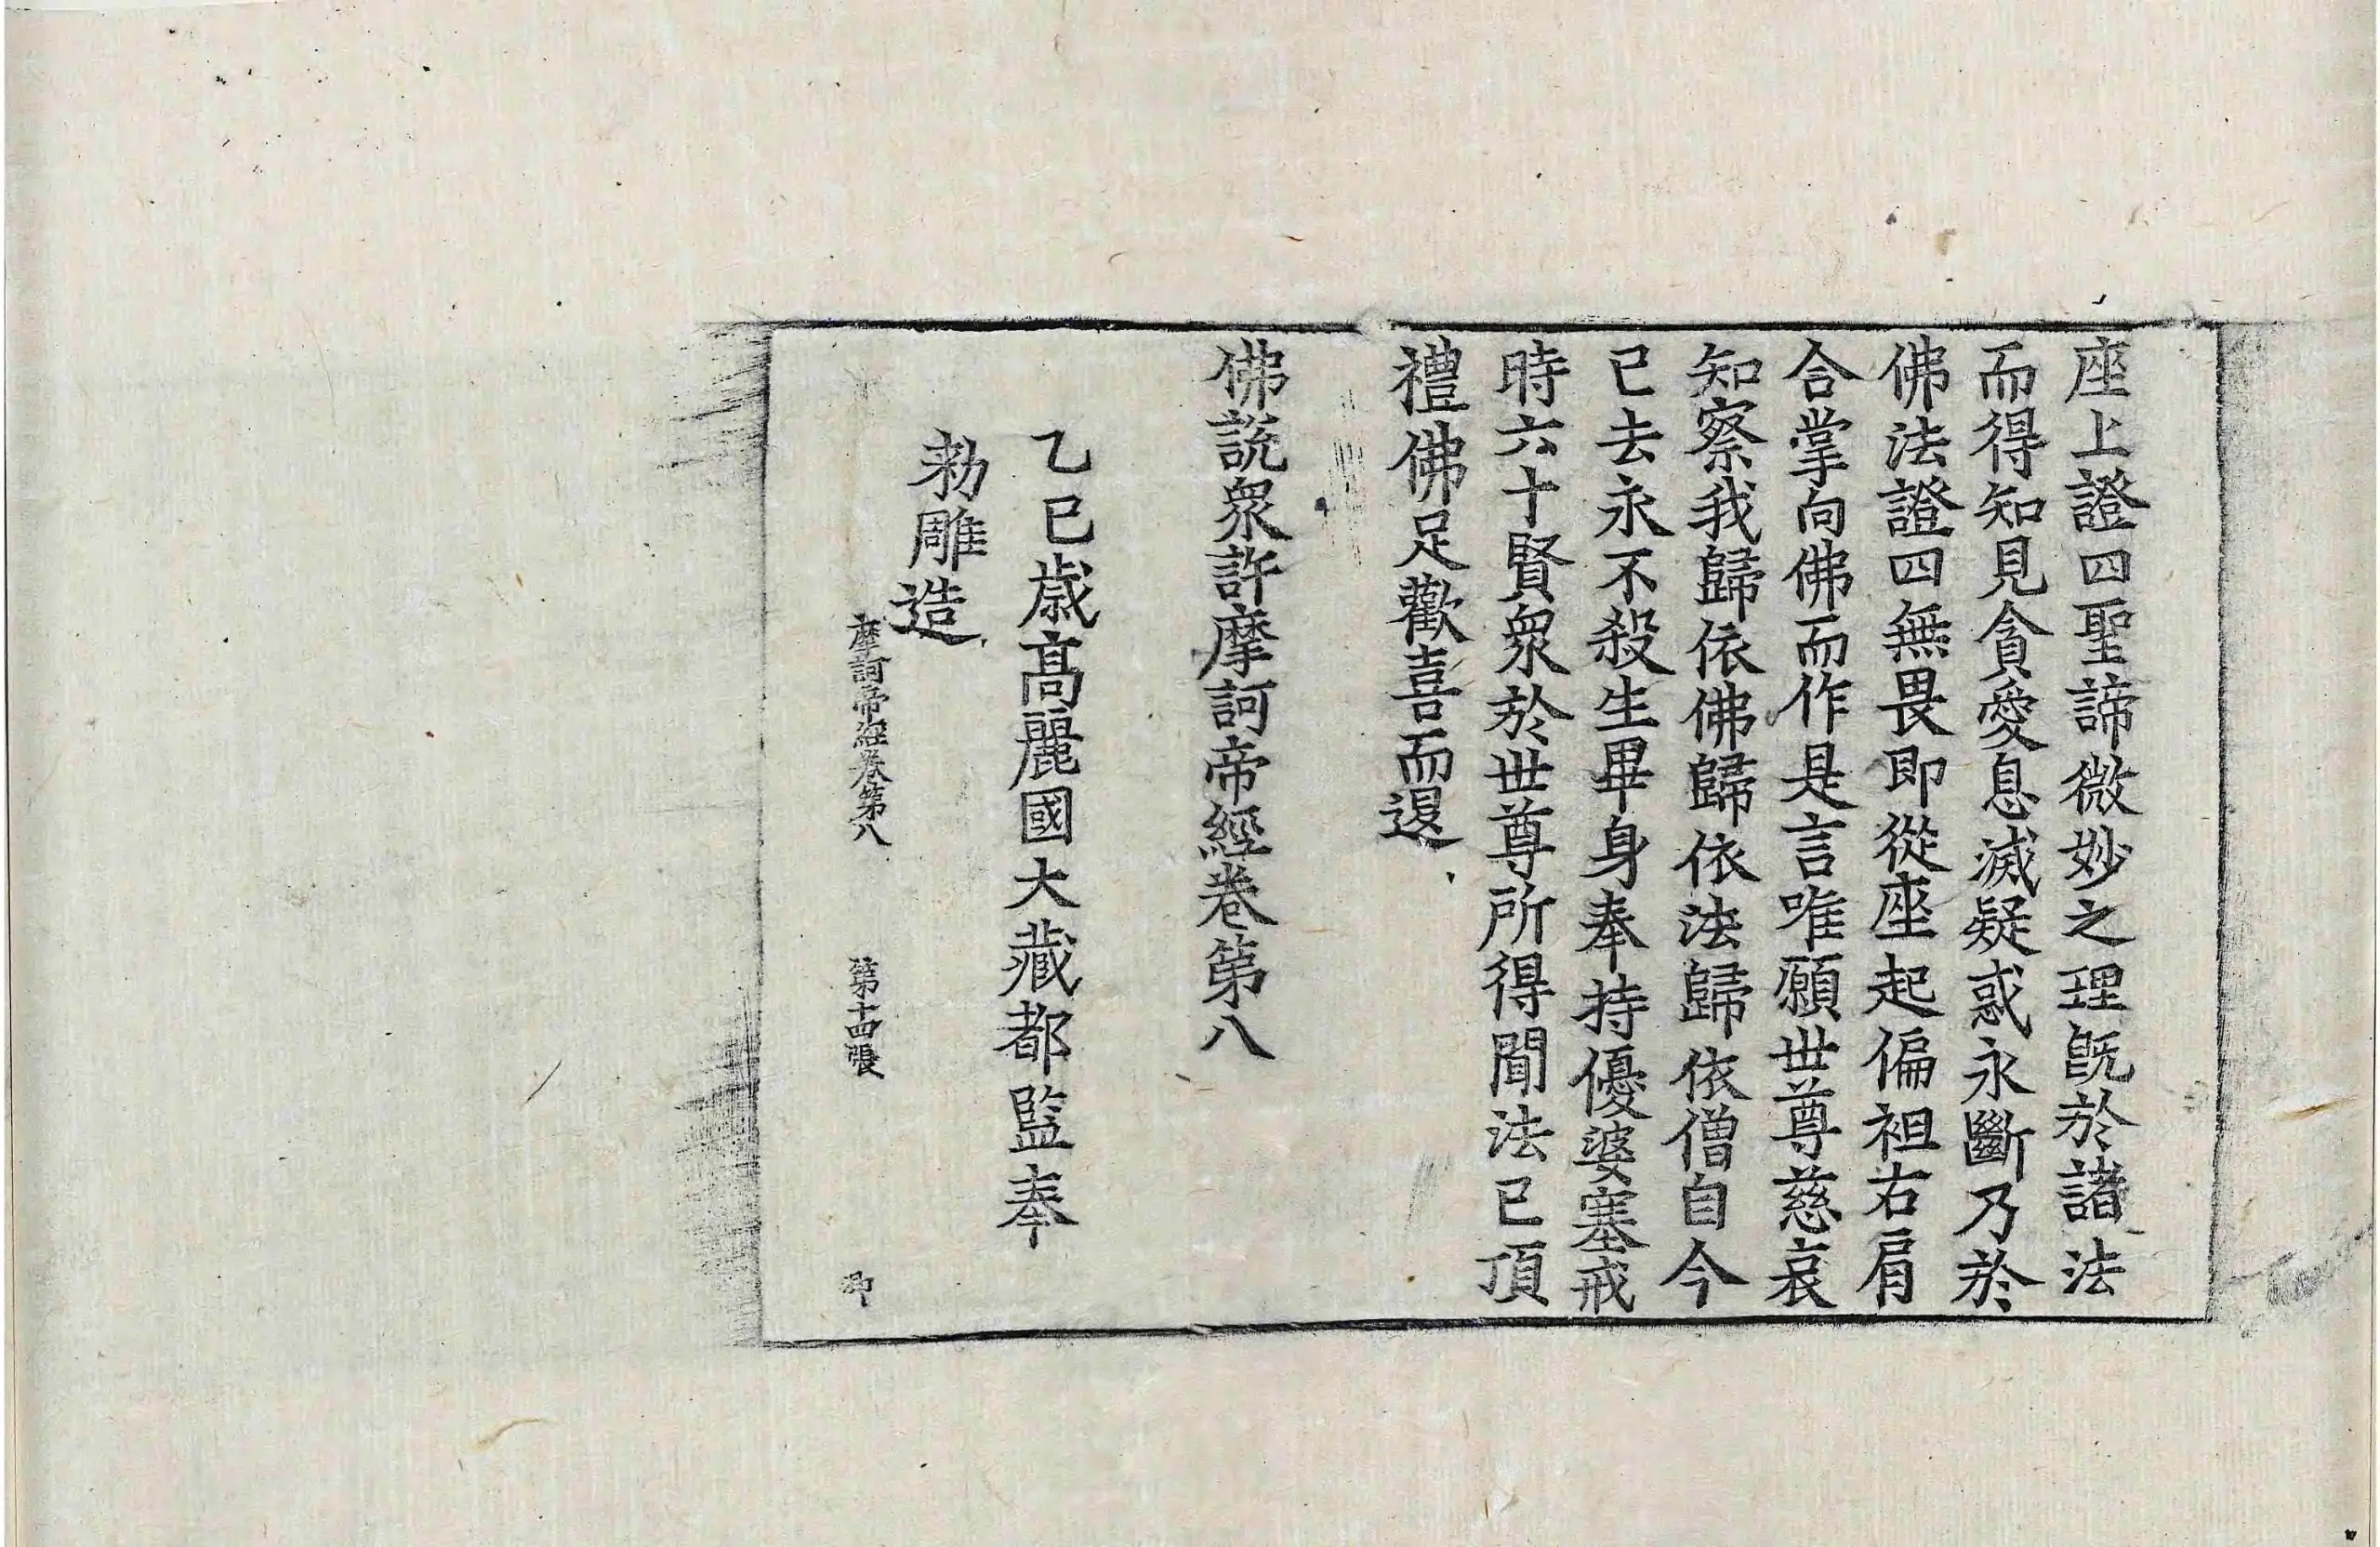 座上證四聖諦微妙之理旣於諸法
而得知見貪愛息滅疑惑永斷乃於
佛法證四無畏即從座起偏袒右肩
合掌向佛而作是言唯願世尊慈哀
知察我歸依佛歸依法歸依僧自今
已去永不殺生畢身奉持優婆塞戒
時六十賢衆於世尊所得聞法已頂
禮佛足歡喜而退
佛說衆許摩訶帝經卷第八
乙巳歲高麗國大藏都監奉
勑雕造
摩訶帝經卷第八 第十四張